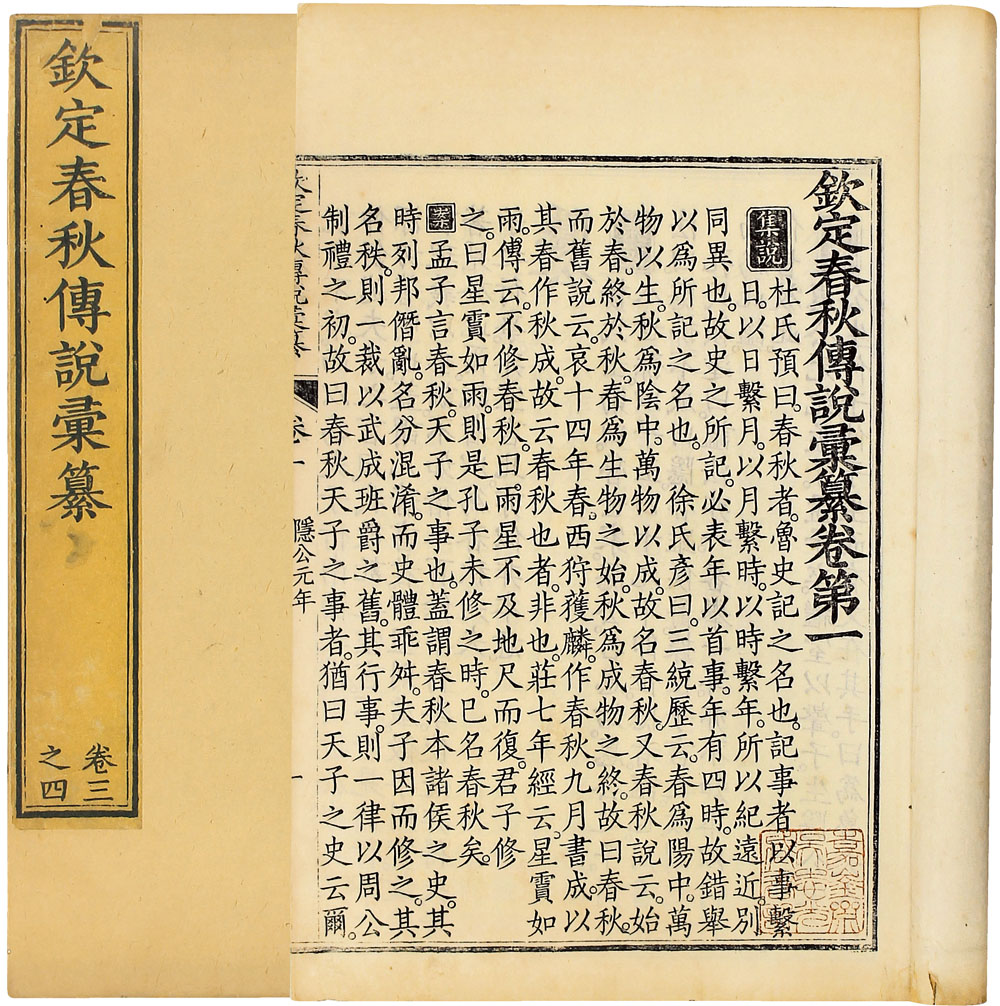 欽定春秋傳說彙纂
卷三
之四
欽定春秋傳說彙纂卷第一
集說 杜氏預曰。春秋者。魯史記之名也。記事者。以事繫
日。以日繫月。以月繫時。以時繫年。所以紀遠近。別
同異也。故史之所記。必表年以首事。年有四時。故錯舉
以爲所記之名也。 徐氏彥曰。三統歷云。春爲陽中。萬
物以生。秋爲陰中。萬物以成。故名春秋。又春秋說云。始
於春。終於秋。春爲生物之始。秋爲成物之終。故曰春秋。
而舊說云。哀十四年春。西狩獲麟。作春秋。九月書成。以
其春作秋成。故云春秋也者。非也。莊七年經云。星霣如
雨。傳云。不修春秋。曰雨星不及地尺而復。君子修
之。曰星霣如雨。則是孔子未修之時。已名春秋矣。
案 孟子言春秋。天子之事也。蓋謂春秋本諸侯之史。其
時列邦僭亂。名分混淆。而史體乖舛。夫子因而修之。其
名秩。則一裁以武成班爵之舊。其行事。則一律以周公
制禮之初。故曰春秋天子之事者。猶曰天子之史云爾。
欽定春秋傳說彙纂 卷一 隱公元年 一